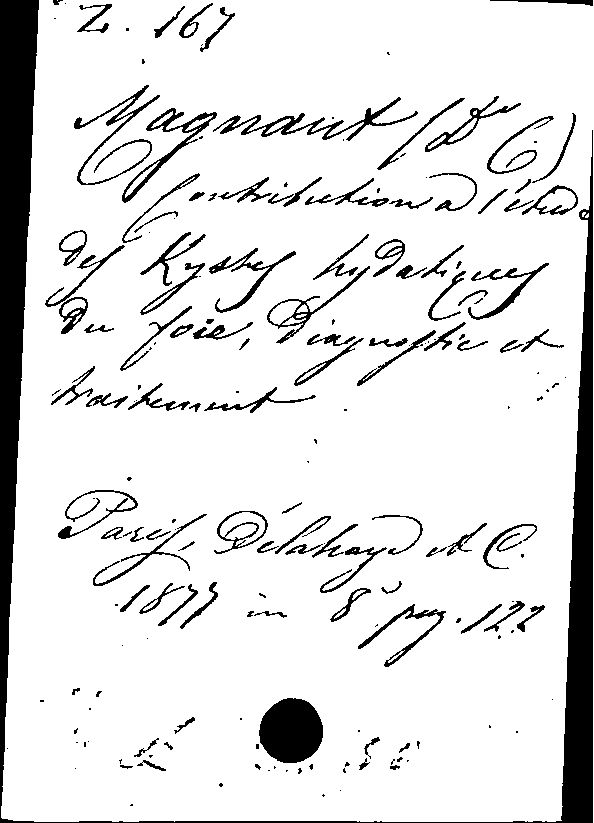 Z. 167
Magnant (Dr C.)
Contribution à l'étude
des Kystes hydatiques
du foie, Diagnostic et
traitement
Paris, Délahaye et C.
1877 in 8° pag. 122